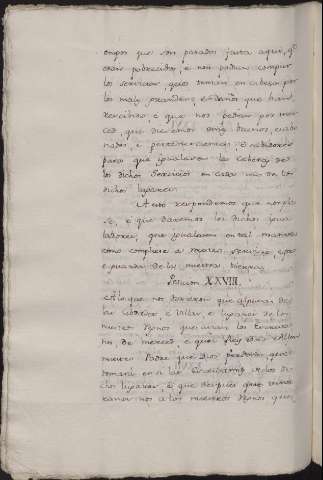 tiempos que son pasados fasta aqui, q.e
estais pobrecidos, e non podian complir
los servicios, que tenian en cabeza, por
los males grandes, e daños que havia
e que nos pedian por mer
ced, que diesemos omes buenos, cuido
nados, e pertenecientes, e sabidores
para que igualasen las cabezas de
los dichos servicios en cada uno de los
dichos lugares.
A esto respondemos que nos pla
ce, e que daremos los dichos igua
ladores, que igualaran en tal manera
como cumpliere a nuestro servicio, e pro
e guarda de la nuestra tierra.
Peticion XXVIII.
A lo que nos dixeron que algunas de
las Cibdades e Villas, e lugares de los
nuestros Regnos que avian las Escriva
nias de merced, e quel Rey Don Alfon
nuestro Padre que Dios perdone, que
tomara en si las Escribanias de los di
chos lugares, e que despues que reina
ramos nos en los nuestros Regnos que